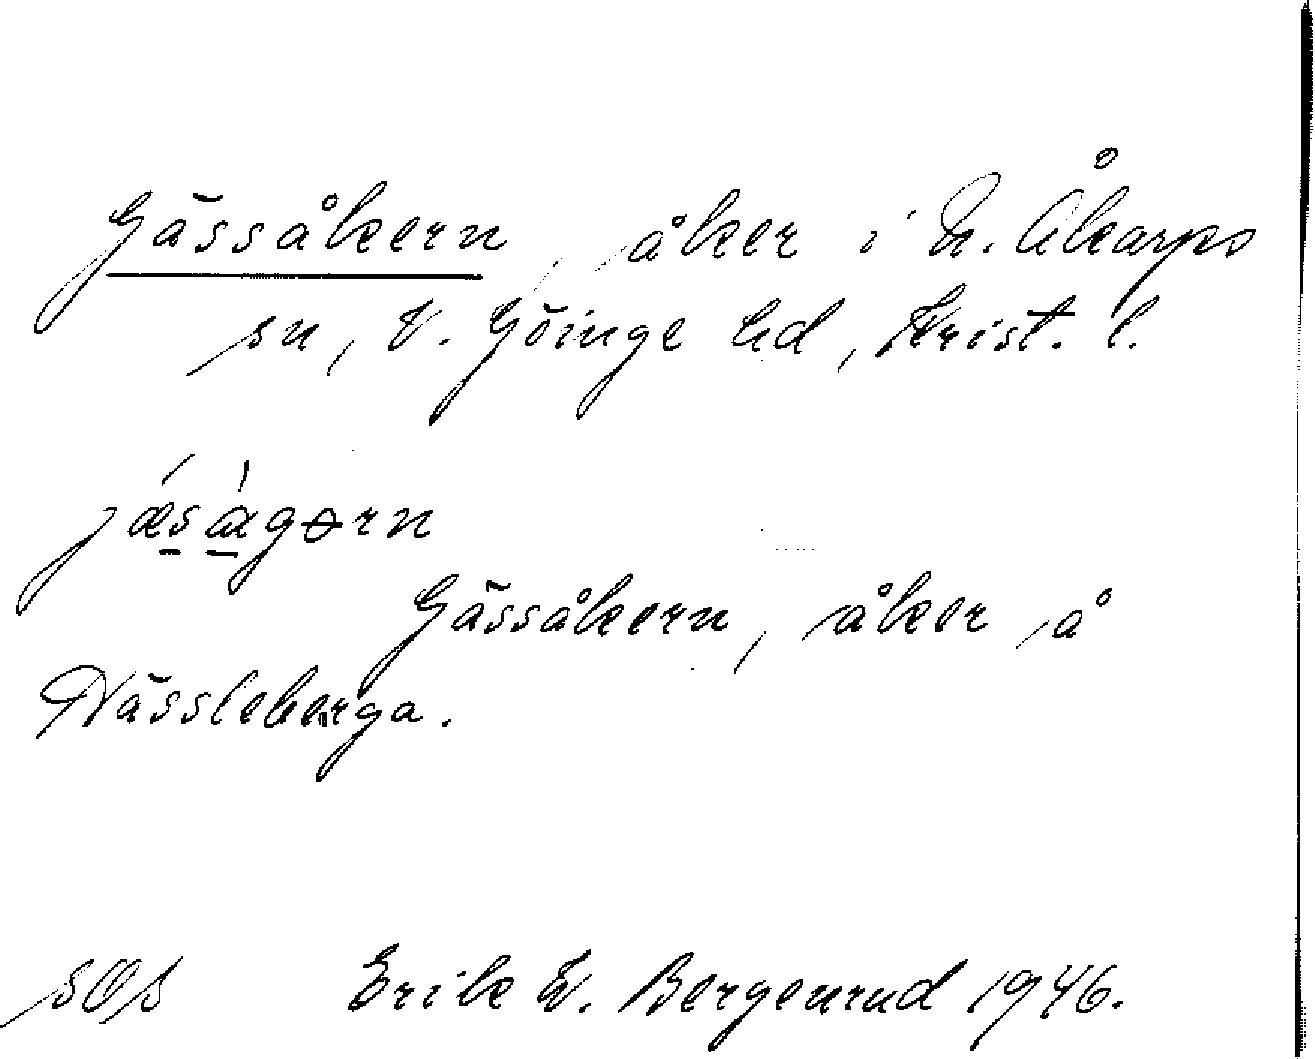 Gässåkern, åker i N. Åkarps
sn, V. Göinge hd, Krist. l.
jǽsàgərn
Gässåkern, åker å
Nässleberga.
SOS Erik W. Bergenrud 1946.